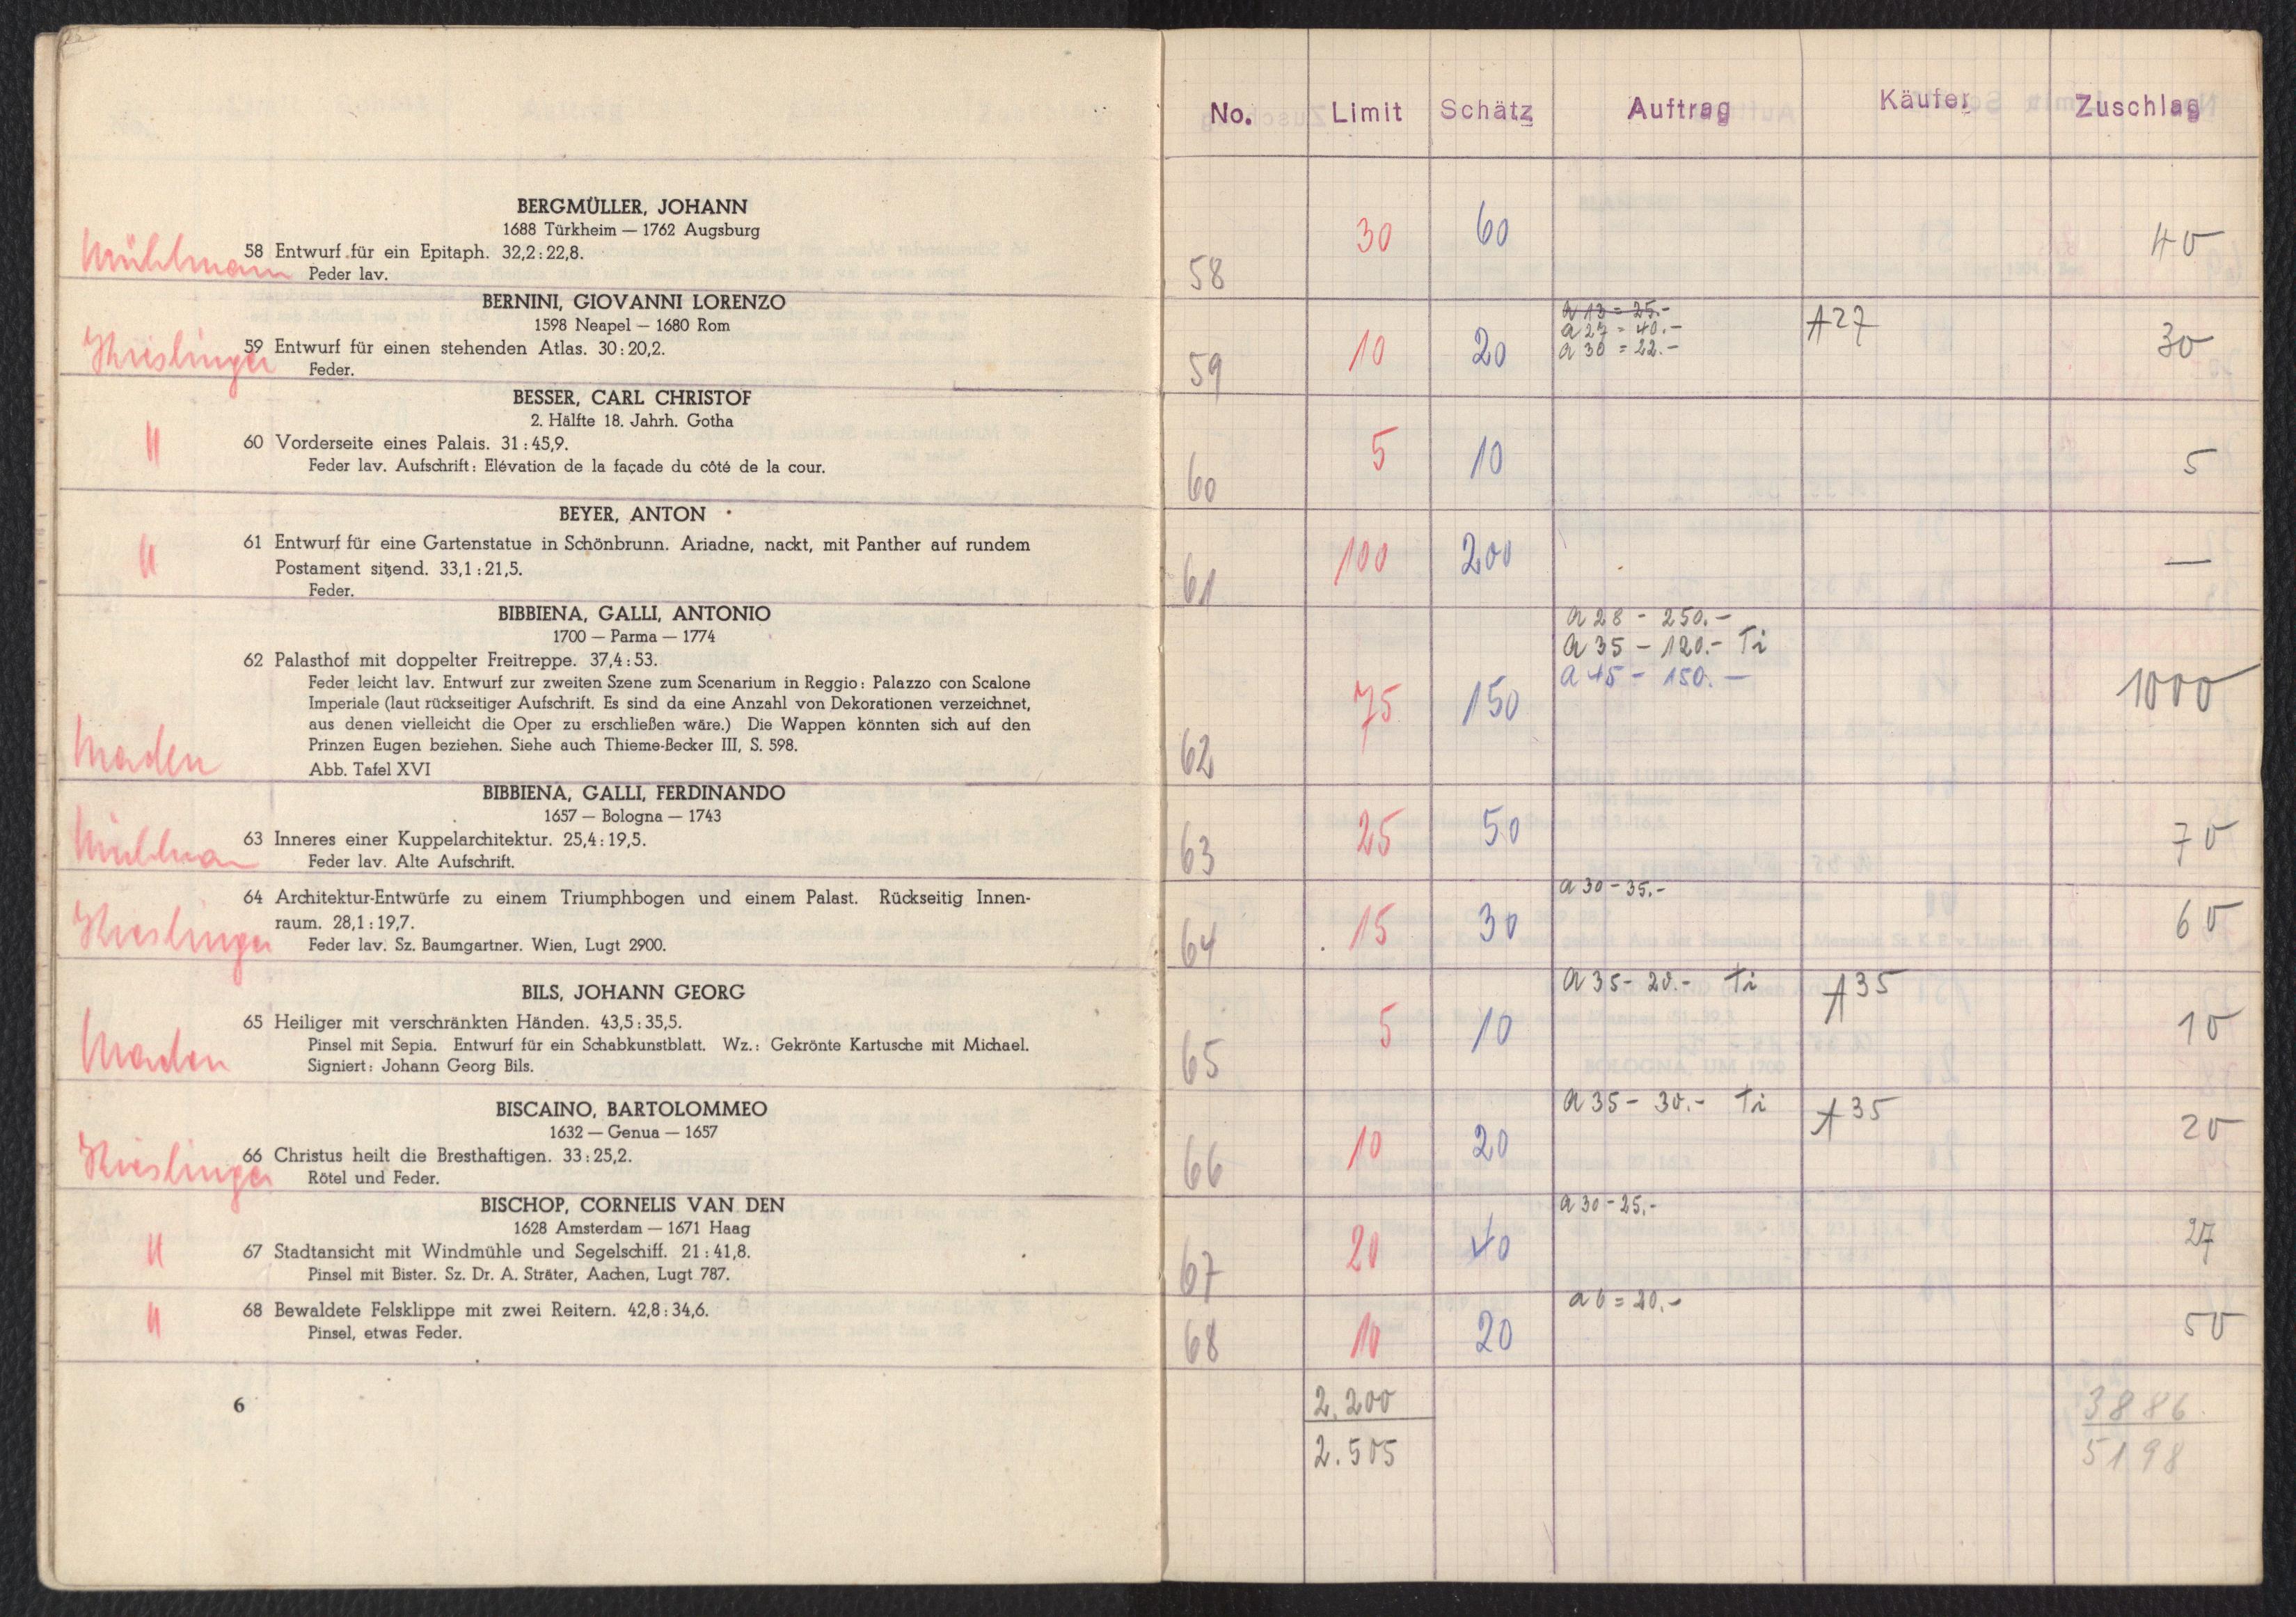 BERGMÜLLER, JOHANN
1688 Türkheim — 1762 Augsburg
Mühlmann
58 Entwurf für ein Epitaph. 32,2 : 22,8.
Peder lav.
BERNINI, GIOVANNI LORENZO
1598 Neapel — 1680 Rom
59 Entwurf für einen stehenden Atlas. 30 : 20,2.
Feder.
BESSER, CARL CHRISTOF
2. Hälfte 18. Jahrh. Gotha
"
60 Vorderseite eines Palais. 31 : 45,9.
Feder lav. Aufschrift: Elévation de la façade du côté de la cour.
BEYER, ANTON
"
61 Entwurf für eine Gartenstatue in Schönbrunn. Ariadne, nackt, mit Panther auf rundem
Postament sitzend. 33,1 : 21,5.
Feder.
BIBBIENA, GALLI, ANTONIO
1700 — Parma — 1774
62 Palasthof mit doppelter Freitreppe. 37,4 : 53.
Feder leicht lav. Entwurf zur zweiten Szene zum Scenarium in Reggio: Palazzo con Scalone
Imperiale (laut rückseitiger Aufschrift. Es sind da eine Anzahl von Dekorationen verzeichnet,
aus denen vielleicht die Oper zu erschließen wäre.) Die Wappen könnten sich auf den
Prinzen Eugen beziehen. Siehe auch Thieme-Becker III, S. 598.
Abb. Tafel XVI
BIBBIENA, GALLI, FERDINANDO
1657 — Bologna — 1743
63 Inneres einer Kuppelarchitektur. 25,4 : 19,5.
Feder lav. Alte Aufschrift.
64 Architektur-Entwürfe zu einem Triumphbogen und einem Palast. Rückseitig Innen-
raum. 28,1 : 19,7.
Feder lav. Sz. Baumgartner. Wien, Lugt 2900.
BILS, JOHANN GEORG
65 Heiliger mit verschränkten Händen. 43,5 : 35,5.
Pinsel mit Sepia. Entwurf für ein Schabkunstblatt. Wz.: Gekrönte Kartusche mit Michael.
Signiert: Johann Georg Bils.
BISCAINO, BARTOLOMMEO
1632 — Genua — 1657
66 Christus heilt die Bresthaftigen. 33 : 25,2.
Rötel und Feder.
BISCHOP, CORNELIS VAN DEN
1628 Amsterdam — 1671 Haag
"
67 Stadtansicht mit Windmühle und Segelschiff. 21 : 41,8.
Pinsel mit Bister. Sz. Dr. A. Sträter, Aachen, Lugt 787.
"
68 Bewaldete Felsklippe mit zwei Reitern. 42,8 : 34,6.
Pinsel, etwas Feder.
6
No. Limit Schätz Auftrag Käufer Zuschlag
58 30 60 40
a 13 = 25.-
a 27 = 40.-
a 30 = 22.-
59 10 20 A 27 30
60 5 10 5
61 100 200 —
a 28 - 250.-
a 35 - 120.- Ti
a 45 - 150.-
62 75 150 1000
63 25 50 70
a 30 - 35.-
64 15 30 60
a 35 - 20.- Ti A 35
65 5 10 10
a 35 - 30.- Ti A 35
66 10 20 20
a 30 - 25.-
67 20 40 27
a 6 = 20.-
68 10 20 50
2.200 3886
2.505 5198